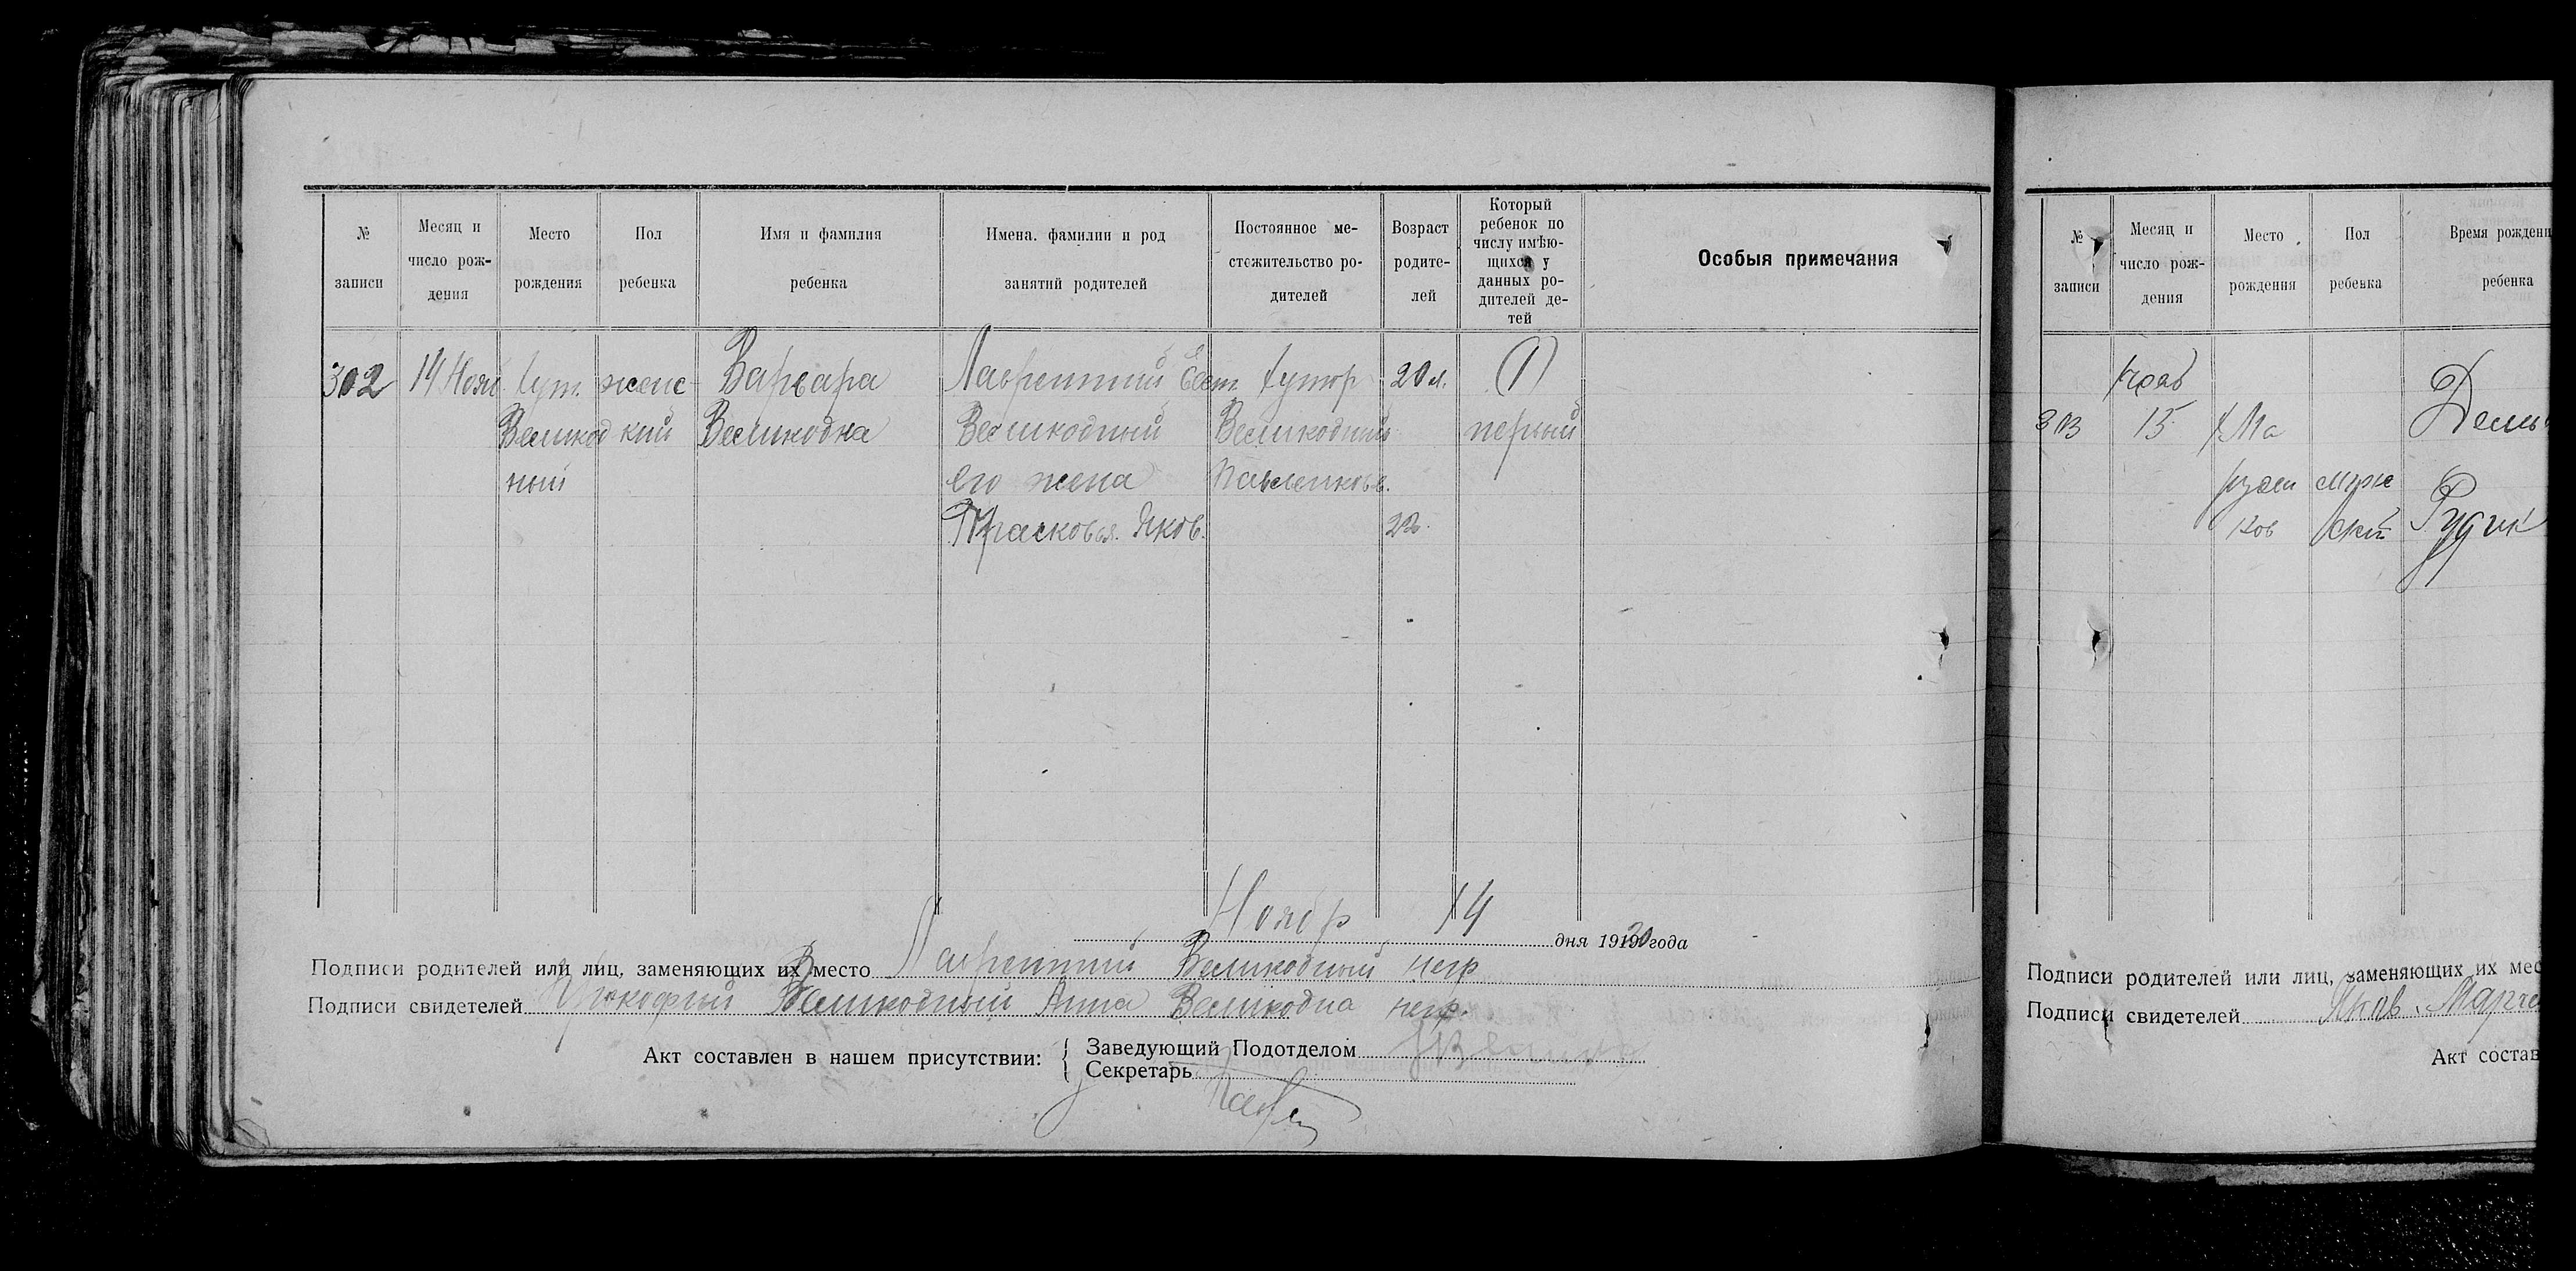 № записи
Месяц и число рождения
Место рождения
Пол ребенка
Имя и фамилия ребенка
Имена. фамилии и род занятий родителей
Постоянное ме-
стожительство ро-
дителей
Возраст
родите-
лей
Который
ребенок по
числу имѣю-
щихся у
данных ро-
дителей де-
тей
Особыя примечания
302 14 Нояб хут. женс Варвара Лаврентий Евст. хутор 20 л. (1)
Великод кий Великодна Великодный Великодный первый
ный его жена Павленков.
Прасковья Яков. 22
Ноябр 14 дня 1920 года
Подписи родителей или лиц, заменяющих их место Лаврентий Великодный негр
Подписи свидетелей Прокофий Великодный Анна Великодна негр.
Акт составлен в нашем присутствии:
Заведующий Подотделом
Секретарь
№ записи
Месяц и
число рож-
дения
Место рождения
Пол ребенка
Время рождени
ребенка
303 15 Ма
муж
ков ской Рудик
Подписи родителей или лиц, заменяющих их мес
Подписи свидетелей Яков Марче
Акт состав